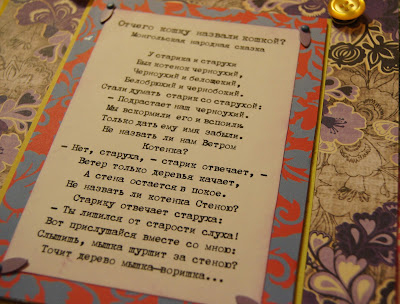 Отчего кошку назвали кошкой?
Монгольская народная сказка
У старика и старухи
Был котенок черноухий,
Черноухий и белощекий,
Белобрюхий и чернобокий.
Стали думать старик со старухой:
- Подрастает наш черноухий.
Мы вскормили его и вспоили
Только дать ему имя забыли.
Не назвать ли нам Ветром
Котенка?
- Нет, старуха, - старик отвечает, -
Ветер только деревья качает,
А стена остается в покое.
Не назвать ли котенка Стеною?
Старику отвечает старуха:
- Ты лишился от старости слуха!
Вот прислушайся вместе со мною:
Слышишь, мышка шуршит за стеною?
Точит дерево мышка-воришка...